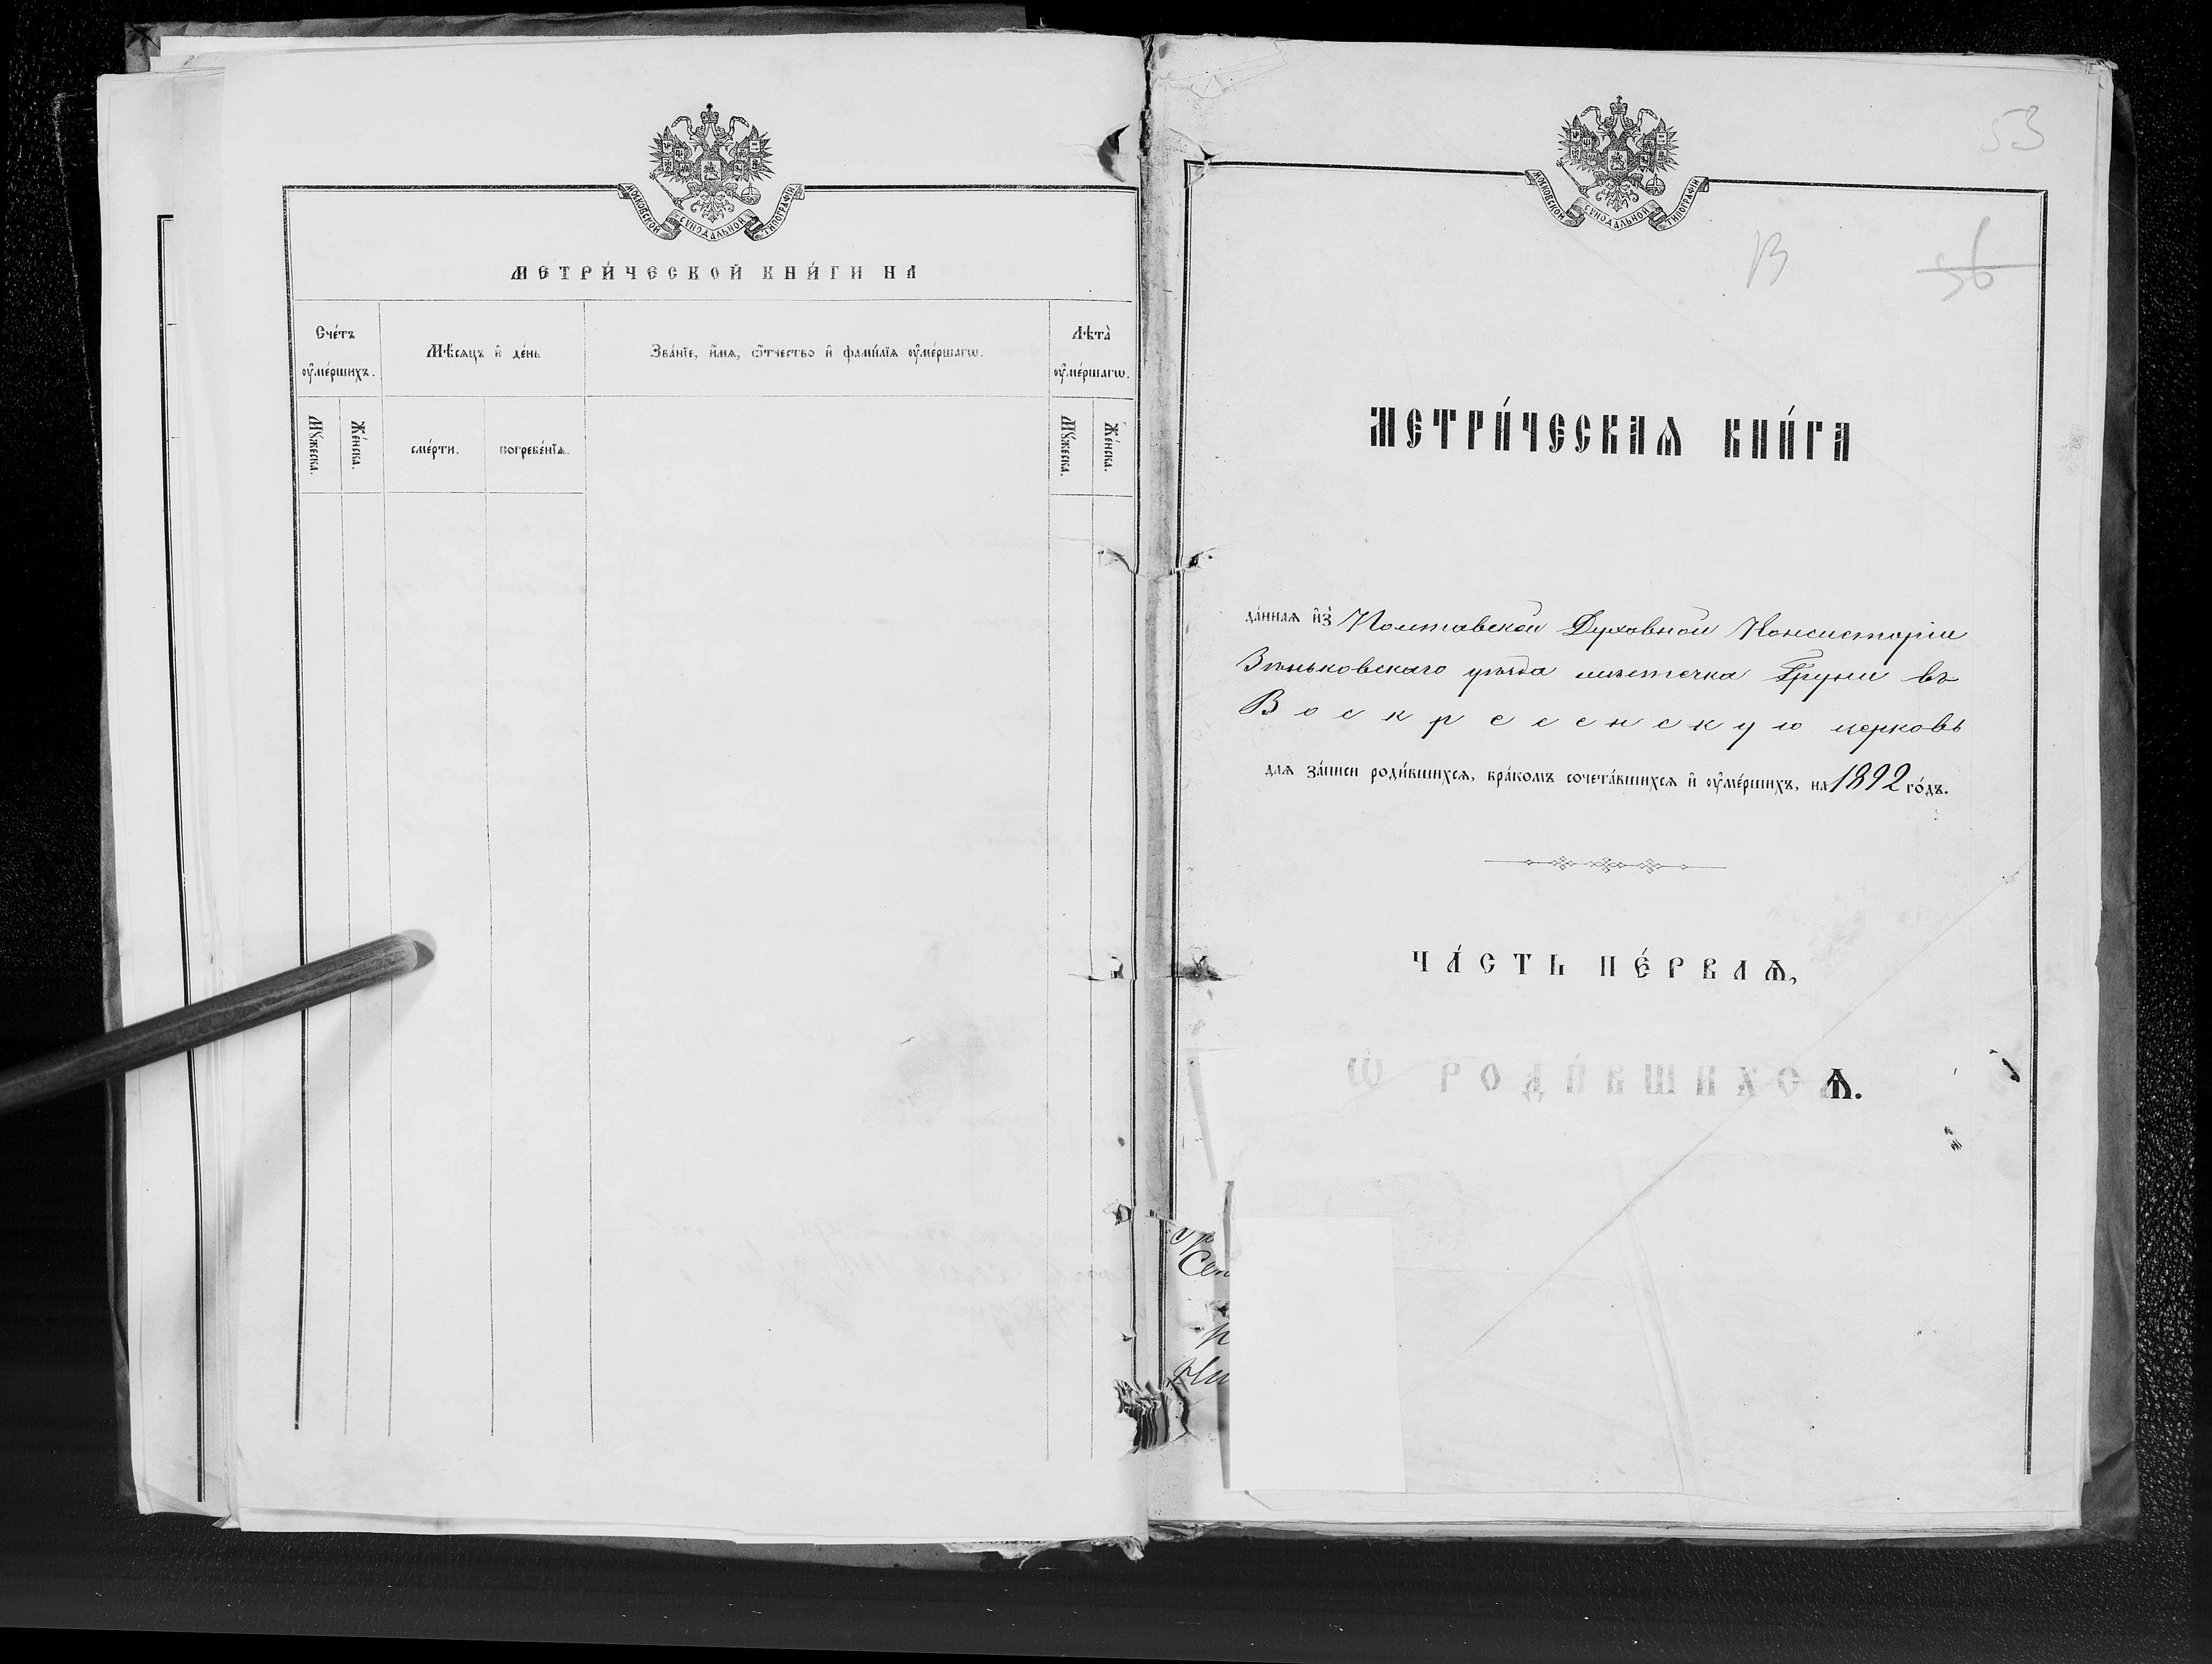 МОСКОВСКОЙ СѴНОДАЛЬНОЙ ТИПОГРАФІИ
МЕТРИ́ЧЕСКОЙ КНИ́ГИ НА
Сче́тъ ᲂу҆ме́ршихъ.
Мѣ́сяцъ и҆ де́нь
Зва́нїе, и҆́мѧ, ѻ҆́тчество и҆ фами́лїѧ ᲂу҆ме́ршагѡ.
Лѣ́та ᲂу҆ме́ршагѡ.
Мꙋ́жеска.
Же́нска.
сме́рти.
погребе́нїѧ.
Мꙋ́жеска.
Же́нска.
53
МОСКОВСКОЙ СѴНОДАЛЬНОЙ ТИПОГРАФІИ
В
56
МЕТРИ́ЧЕСКАѦ КНИ́ГА
да́ннаѧ и҆з̾ Полтавской Духовной Консисторіи
Зѣньковскаго уѣзда мѣстечка Груни въ
Воскресенскую церковь
длѧ за́писи роди́вшихсѧ, бра́комъ сочета́вшихсѧ и҆ ᲂу҆ме́ршихъ, на 1892 го́дъ.
ЧА́СТЬ ПЕ́РВАѦ,
Ѡ҆ РОДИ́ВШИХСѦ.